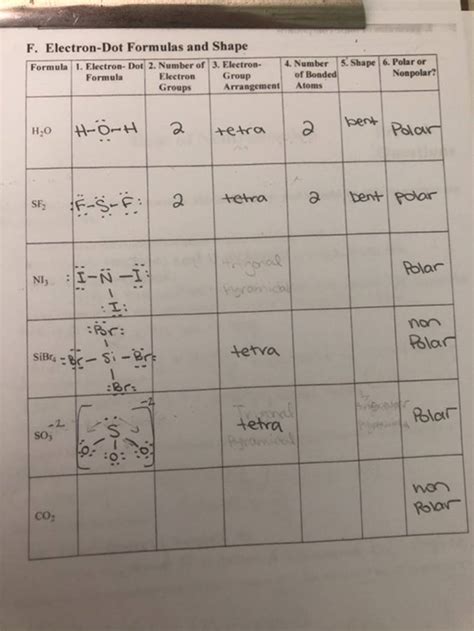 F. Electron-Dot Formulas and Shape
Formula 1. Electron- Dot Formula 2. Number of Electron Groups 3. Electron- Group Arrangement 4. Number of Bonded Atoms 5. Shape 6. Polar or Nonpolar?
H₂O H-Ö-H 2 tetra 2 bent Polar
SF₂ :F-S-F: 2 tetra 2 bent polar
NI₃ :I-N-I: trigonal Polar
I: pyramidal
:Br: non
SiBr₄ :Br-Si-Br: tetra Polar
:Br:
SO₃⁻² -2 Trigonal Polar
S tetra
:O :O: O: Pyramidal
CO₂ non
Polar